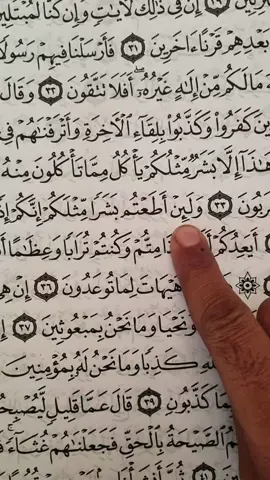 ـرِينَ ﴿٢٩﴾ إِنَّ فِي ذَٰلِكَ لَآيَاتٍ وَإِن كُنَّا لَمُبْتَلِينَ
بَعْدِهِمْ قَرْنًا ءَاخَرِينَ ﴿٣١﴾ فَأَرْسَلْنَا فِيهِمْ رَسُولًا
مَا لَكُم مِّنْ إِلَٰهٍ غَيْرُهُۥٓ أَفَلَا تَتَّقُونَ ﴿٣٢﴾ وَقَالَ
ـنَ كَفَرُوا۟ وَكَذَّبُوا۟ بِلِقَآءِ ٱلْأَخِرَةِ وَأَتْرَفْنَٰهُمْ فِي
هَٰذَآ إِلَّا بَشَرٌ مِّثْلُكُمْ يَأْكُلُ مِمَّا تَأْكُلُونَ مِنْهُ
ـرَبُونَ ﴿٣٣﴾ وَلَئِنْ أَطَعْتُم بَشَرًا مِّثْلَكُمْ إِنَّكُمْ إِذًا
أَيَعِدُكُمْ مِتُّمْ وَكُنتُمْ تُرَابًا وَعِظَٰمًا
هَيْهَاتَ لِمَا تُوعَدُونَ ﴿٣٦﴾ إِنْ هِيَ
وَنَحْيَا وَمَا نَحْنُ بِمَبْعُوثِينَ ﴿٣٧﴾
كَذِبًا وَمَا نَحْنُ لَهُۥ بِمُؤْمِنِينَ
ـمَا كَذَّبُونِ ﴿٣٩﴾ قَالَ عَمَّا قَلِيلٍ لَّيُصْبِحُـ
ـمُ ٱلصَّيْحَةُ بِٱلْحَقِّ فَجَعَلْنَٰهُمْ غُثَآءً